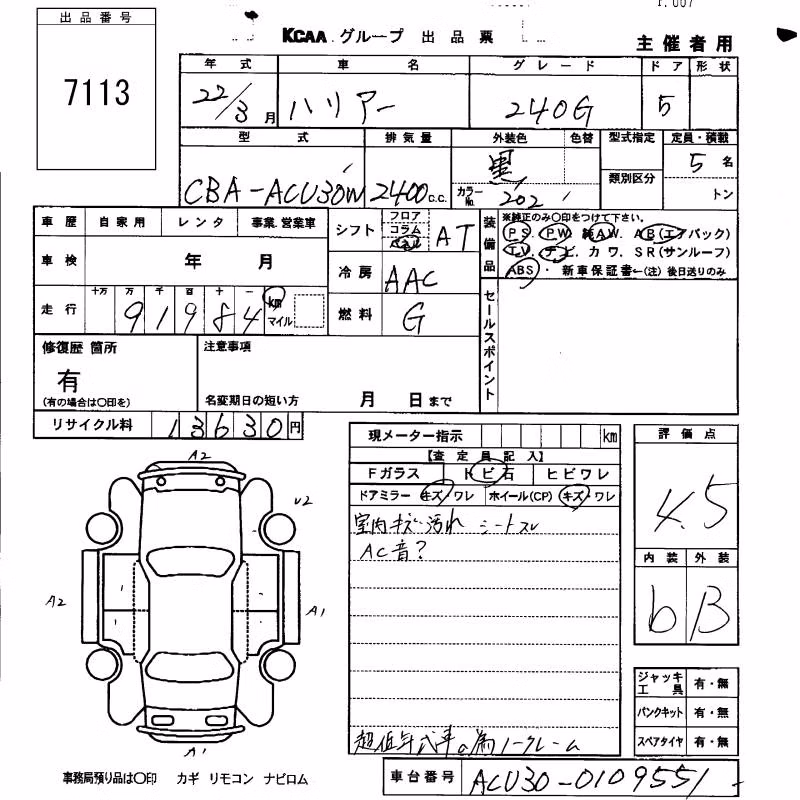 出品番号
7113
KCAA グループ 出品票
主催者用
年式 車名 グレード ドア 形状
22/3月 ハリアー 240G 5
型式 排気量 外装色 色替 型式指定 定員・積載
CBA-ACU30W 2400c.c. 黒 カラーNo. 202 類別区分 5名
トン
車歴 自家用 レンタ 事業.営業車
シフト フロア コラム パネル AT
装備品
※純正のみ○印をつけて下さい。
PS. PW 純AW. AB(エアバック)
TV. ナビ. カワ. SR(サンルーフ)
ABS・新車保証書←(注)後日送りのみ
車検 年 月
冷房 AAC
走行 十万 万 千 百 十 一
91984 km マイル
燃料 G
セールスポイント
修復歴 箇所
有
(有の場合は○印を)
注意事項
名変期日の短い方 月 日まで
リサイクル料 13630円
現メーター指示 km
【査定員記入】
Fガラス トビ石 ヒビワレ
ドアミラー キズ/ワレ ホイール(CP) キズ/ワレ
室内キズ・汚れ シートスレ
AC音?
超低年式車の為ノークレーム
評価点
4.5
内装 外装
b B
A2
A2
A1
A1
ジャッキ工具 有・無
パンクキット 有・無
スペアタイヤ 有・無
事務局預り品は○印 カギ リモコン ナビロム
車台番号 ACU30-0109551